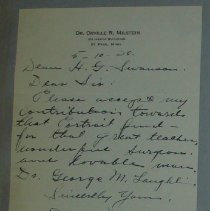 DR. ORVILLE R. MILSTEIN
ST. PAUL, MINN.
5-10-28.
Dear H. G. Swanson
Dear Sir.
Please accept my
contribution towards
that Portrait fund -
for that great teacher,
wonderful surgeon
and lovable man
Dr. George M. Laughlin
Sincerely Yours,